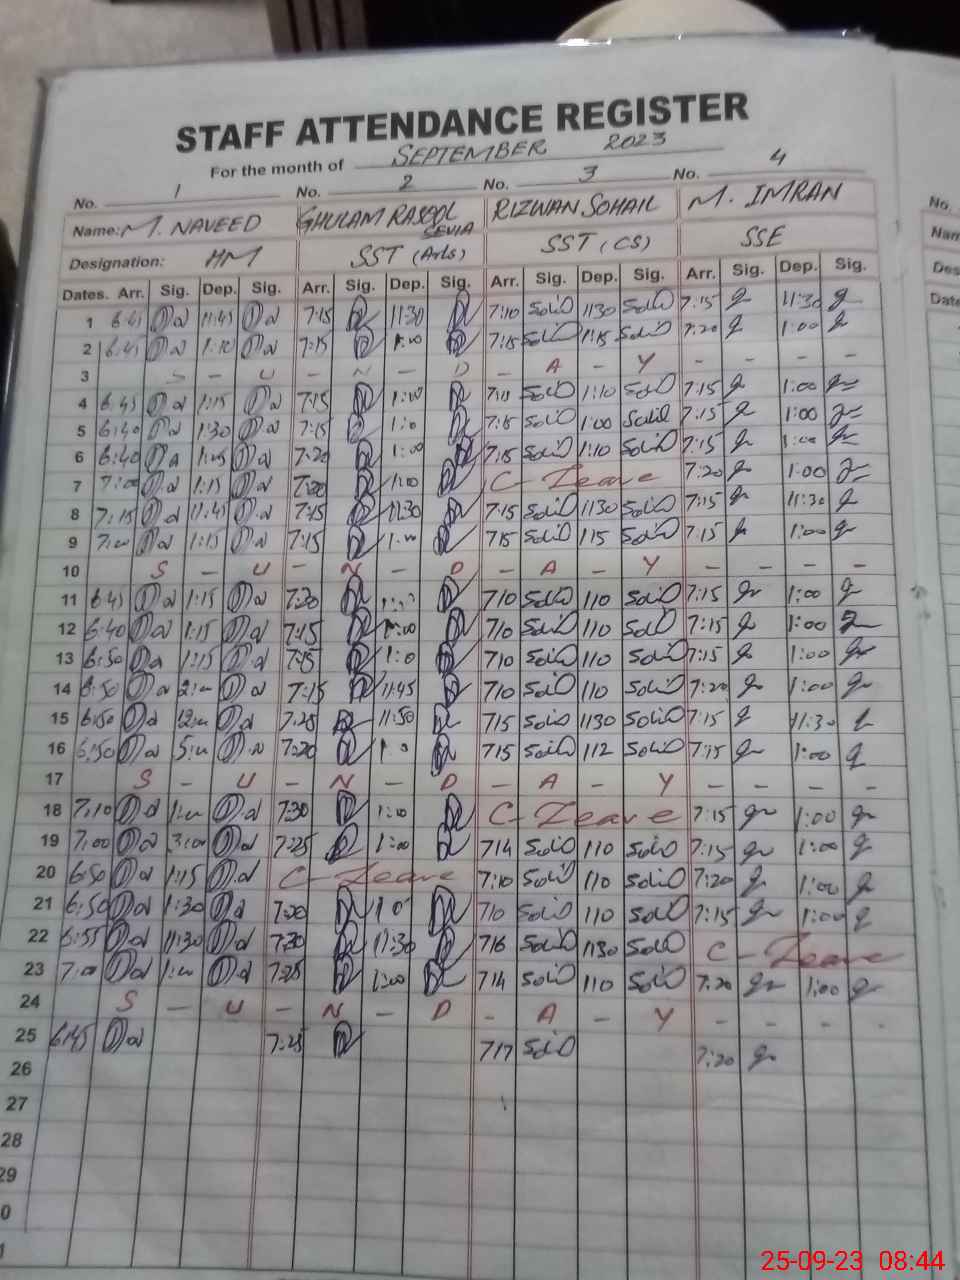 STAFF ATTENDANCE REGISTER
For the month of SEPTEMBER 2023
No. 1 No. 2 No. 3 No. 4
Name: M. NAVEED GHULAM RASOOL RIZWAN SOHAIL M. IMRAN
Designation: HM SST (Arts) SST (CS) SSE
Dates. Arr. Sig. Dep. Sig. Arr. Sig. Dep. Sig. Arr. Sig. Dep. Sig. Arr. Sig. Dep. Sig.
1 6:45 11:45 7:15 11:30 7:10 Solid 1130 Solid 7:15 11:30
2 6:45 1:10 7:15 1:00 7:15 Solid 1:15 Solid 7:20 1:00
3 S - U - N - D - A - Y - - - -
4 6:45 1:15 7:15 1:00 Solid 1:10 Solid 7:15 1:00
5 6:40 1:30 7:15 1:0 7:15 Solid 1:00 Solid 7:15 1:00
6 6:40 7:20 1:00 7:15 Solid 1:10 Solid 7:15 1:00
7 7:00 1:15 7:20 1:00 C - Leave 7:20 1:00
8 7:15 11:45 7:15 11:30 7:15 Solid 1130 Solid 7:15 11:30
9 7:00 1:15 7:15 1:00 715 Solid 115 Solid 7:15 1:00
10 S - U - N - D - A - Y - - - -
11 6:45 1:15 7:20 710 Solid 110 Solid 7:15 1:00
12 6:40 1:15 7:15 1:00 710 Solid 110 Solid 7:15 1:00
13 6:50 1:15 7:15 1:0 710 Solid 110 Solid 7:15 1:00
14 6:50 2:00 7:15 11:45 710 Solid 110 Solid 7:20 1:00
15 6:50 12:00 7:25 11:50 715 Solid 1130 Solid 7:15 11:30
16 6:50 5:00 7:20 715 Solid 112 Solid 7:15 1:00
17 S - U - N - D - A - Y - - - -
18 7:10 1:00 7:30 1:00 C - Leave 7:15 1:00
19 7:00 3:00 7:25 1:00 714 Solid 110 Solid 7:15 1:00
20 6:50 1:15 C - Leave 7:10 Solid 110 Solid 7:20 1:00
21 6:50 1:30 7:20 710 Solid 110 Solid 7:15 1:00
22 6:55 11:30 7:30 11:30 716 Solid 1130 Solid C - Leave
23 7:00 1:00 7:25 1:00 714 Solid 110 Solid 7:20 1:00
24 S - U - N - D - A - Y - - - -
25 6:45 7:25 717 Solid 7:20
26
27
28
29
0
1
No.
Nam
Des
Date
25-09-23 08:44